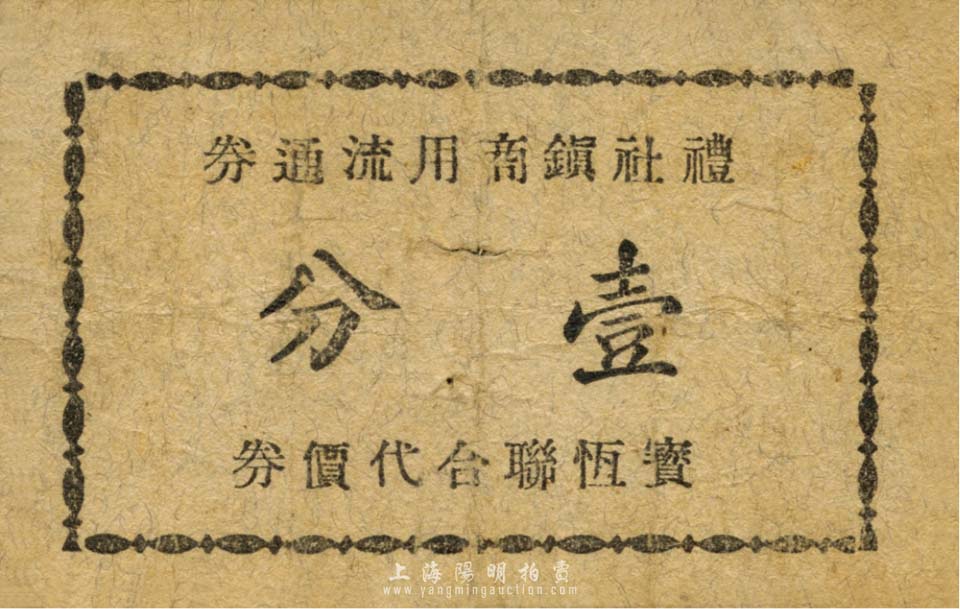 禮社鎮商用流通券
壹分
恆聯合代價券
上海陽明拍賣
www.yangmingauction.com